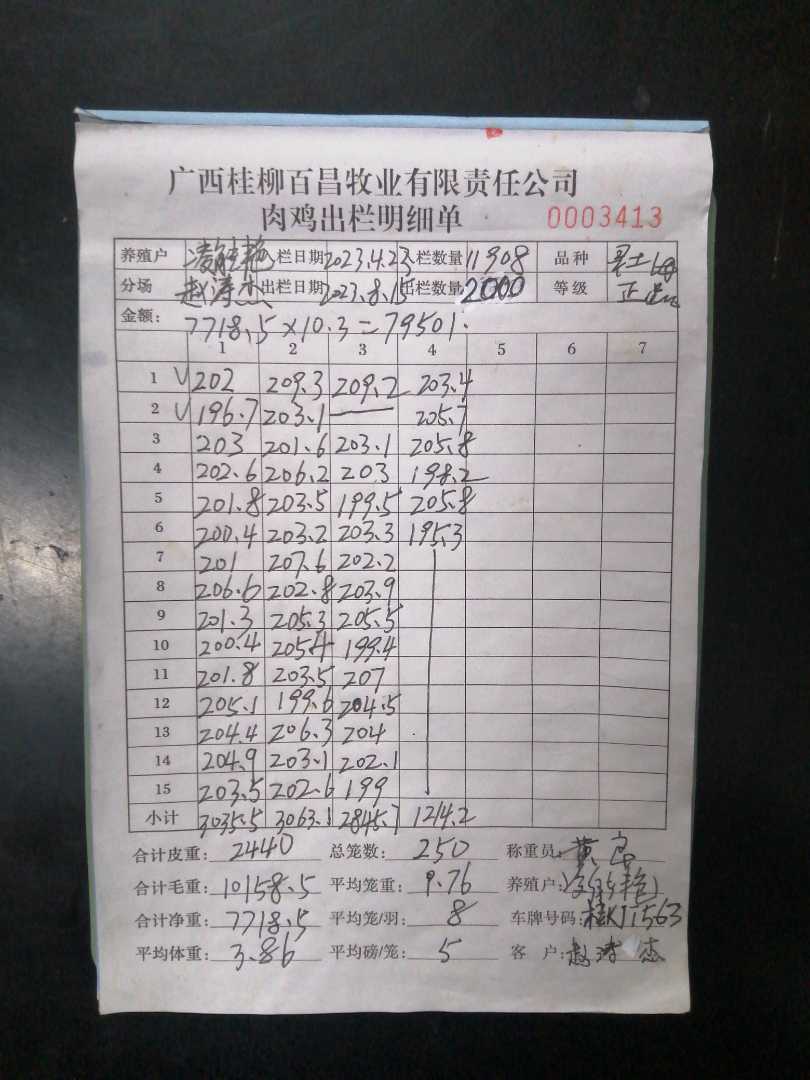 广西桂柳百昌牧业有限责任公司
肉鸡出栏明细单 0003413
养殖户 入栏日期 2023.4.23 入栏数量 11908 品种 土
分场 赵 杰 出栏日期 2023.8.15 出栏数量 2000 等级 正
金额: 7718.5×10.3=79501.
1 2 3 4 5 6 7
1 √ 202 209.3 209.2 203.4
2 √ 196.7 203.1 — 205.7
3 203 201.6 203.1 205.8
4 202.6 206.2 203 198.2
5 201.8 203.5 199.5 205.8
6 200.4 203.2 203.3 195.3
7 201 207.6 202.2
8 206.6 202.8 203.9
9 201.3 205.3 205.5
10 200.4 205.4 199.4
11 201.8 203.5 207
12 205.1 199.6 204.5
13 204.4 206.3 204
14 204.9 203.1 202.1
15 203.5 202.6 199
小计 3035.5 3063.1 2845.7 1214.2
合计皮重: 2440 总笼数: 250 称重员: 黄
合计毛重: 10158.5 平均笼重: 9.76 养殖户:
合计净重: 7718.5 平均笼/羽: 8 车牌号码: 桂KJ1563
平均体重: 3.86 平均磅/笼: 5 客 户: 赵 杰